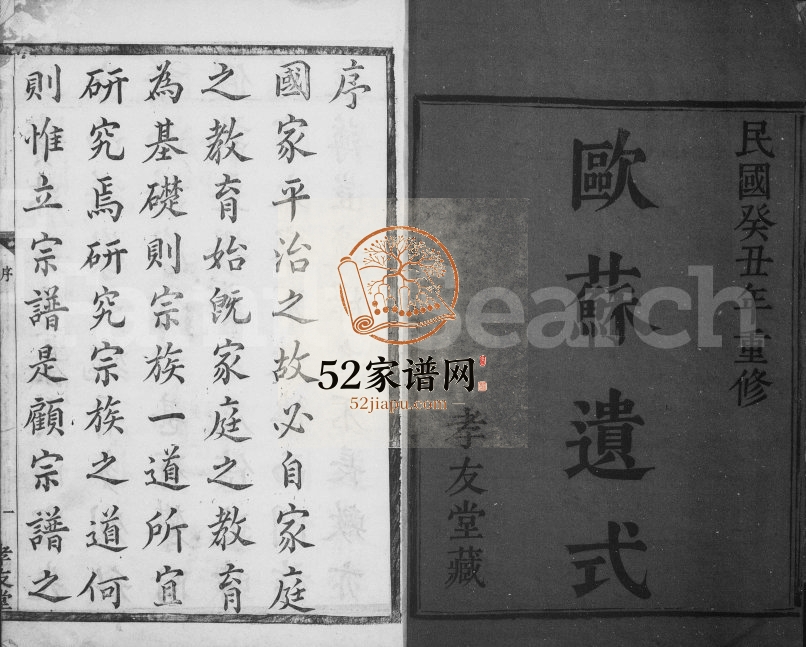 民國癸丑年重修
歐蘇遺式
孝友堂藏
序
國家平治之故必自家庭
之教育始既家庭之教育
為基礎則宗族一道所宜
研究焉研究宗族之道何
則惟立宗譜是顧宗譜之
序
一
孝友堂
FamilySearch
52家谱网
52jiapu.com